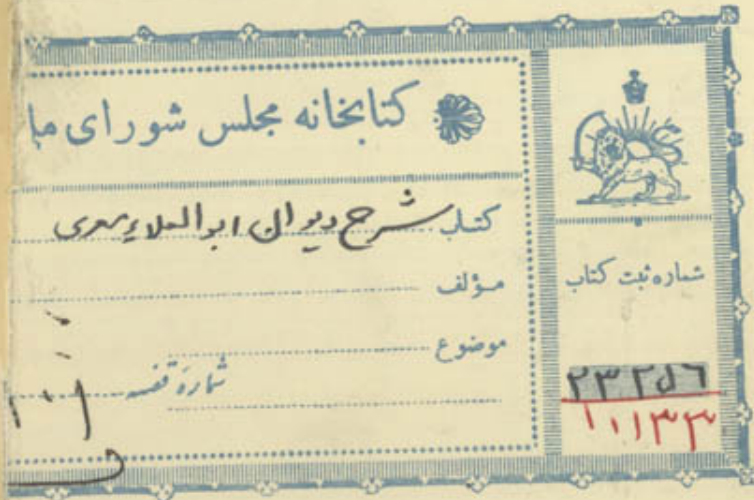 کتابخانه مجلس شورای ما
کتاب شرح دیوان ابوالعلاء معری
مؤلف
موضوع
شماره قفسه
شماره ثبت کتاب
۲۳۲۵۶
۱۰۱۳۳